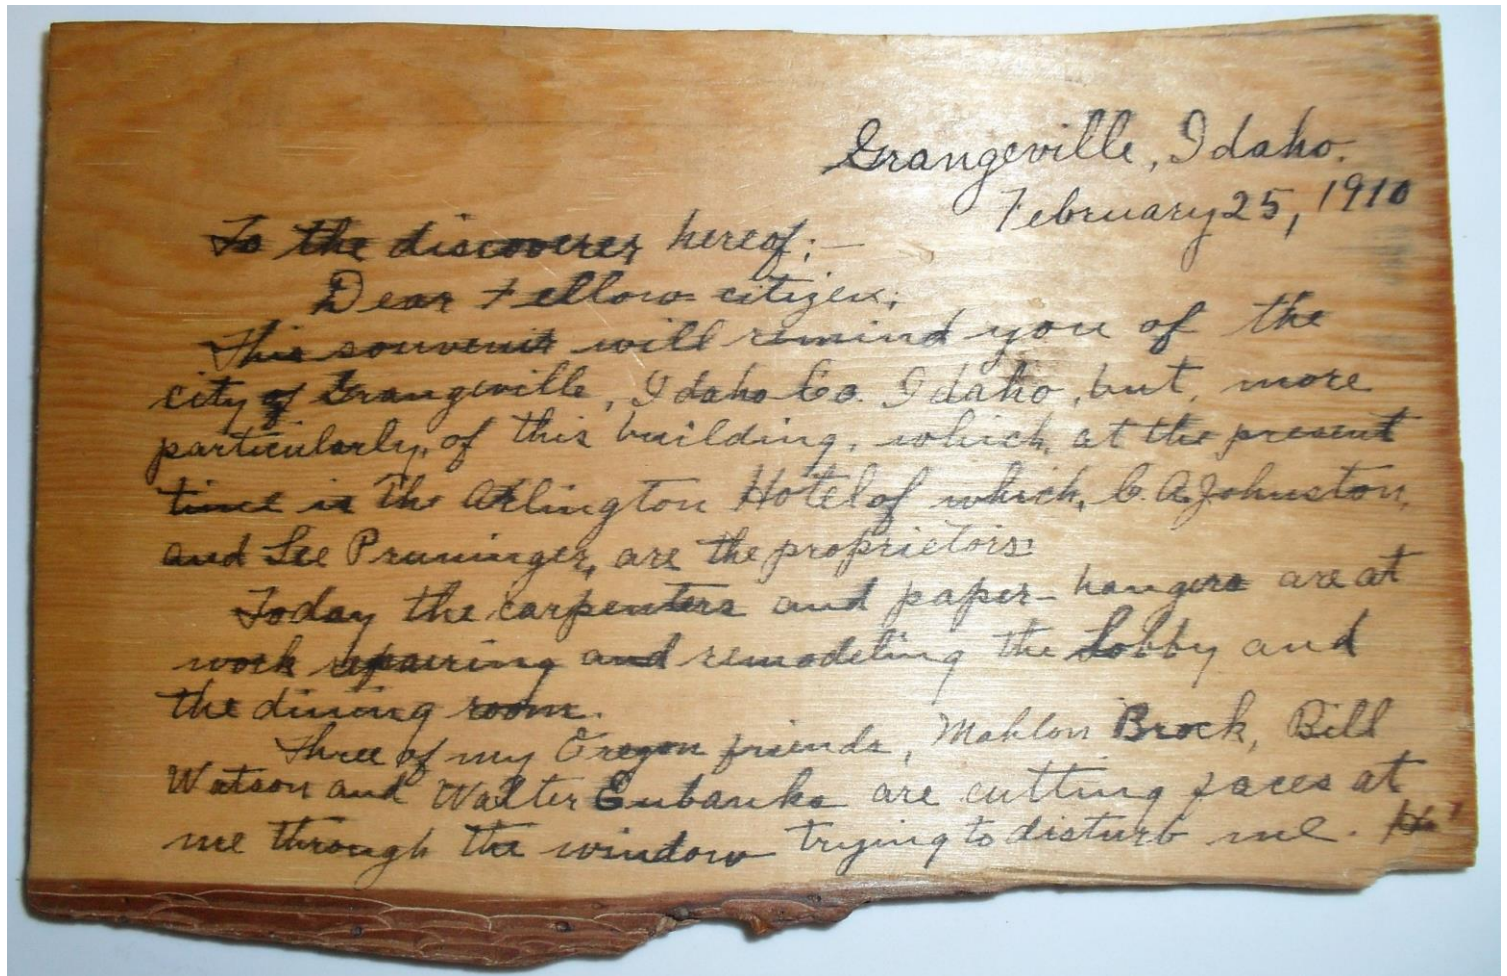 Grangeville, Idaho.
February 25, 1910
To the discoverer hereof; —
Dear Fellow citizen;
This souvenir will remind you of the
city of Grangeville, Idaho Co. Idaho, but, more
particularly, of this building, which, at the present
time is The Arlington Hotel of which, C. A. Johnston,
and Lee Pruninger, are the proprietors.
Today the carpenters and paper-hangers are at
work repairing and remodeling the Lobby and
the dining room.
Three of my Oregon friends, Mahlon Brock, Bill
Watson and Walter Eubanks are cutting faces at
me through the window trying to disturb me.